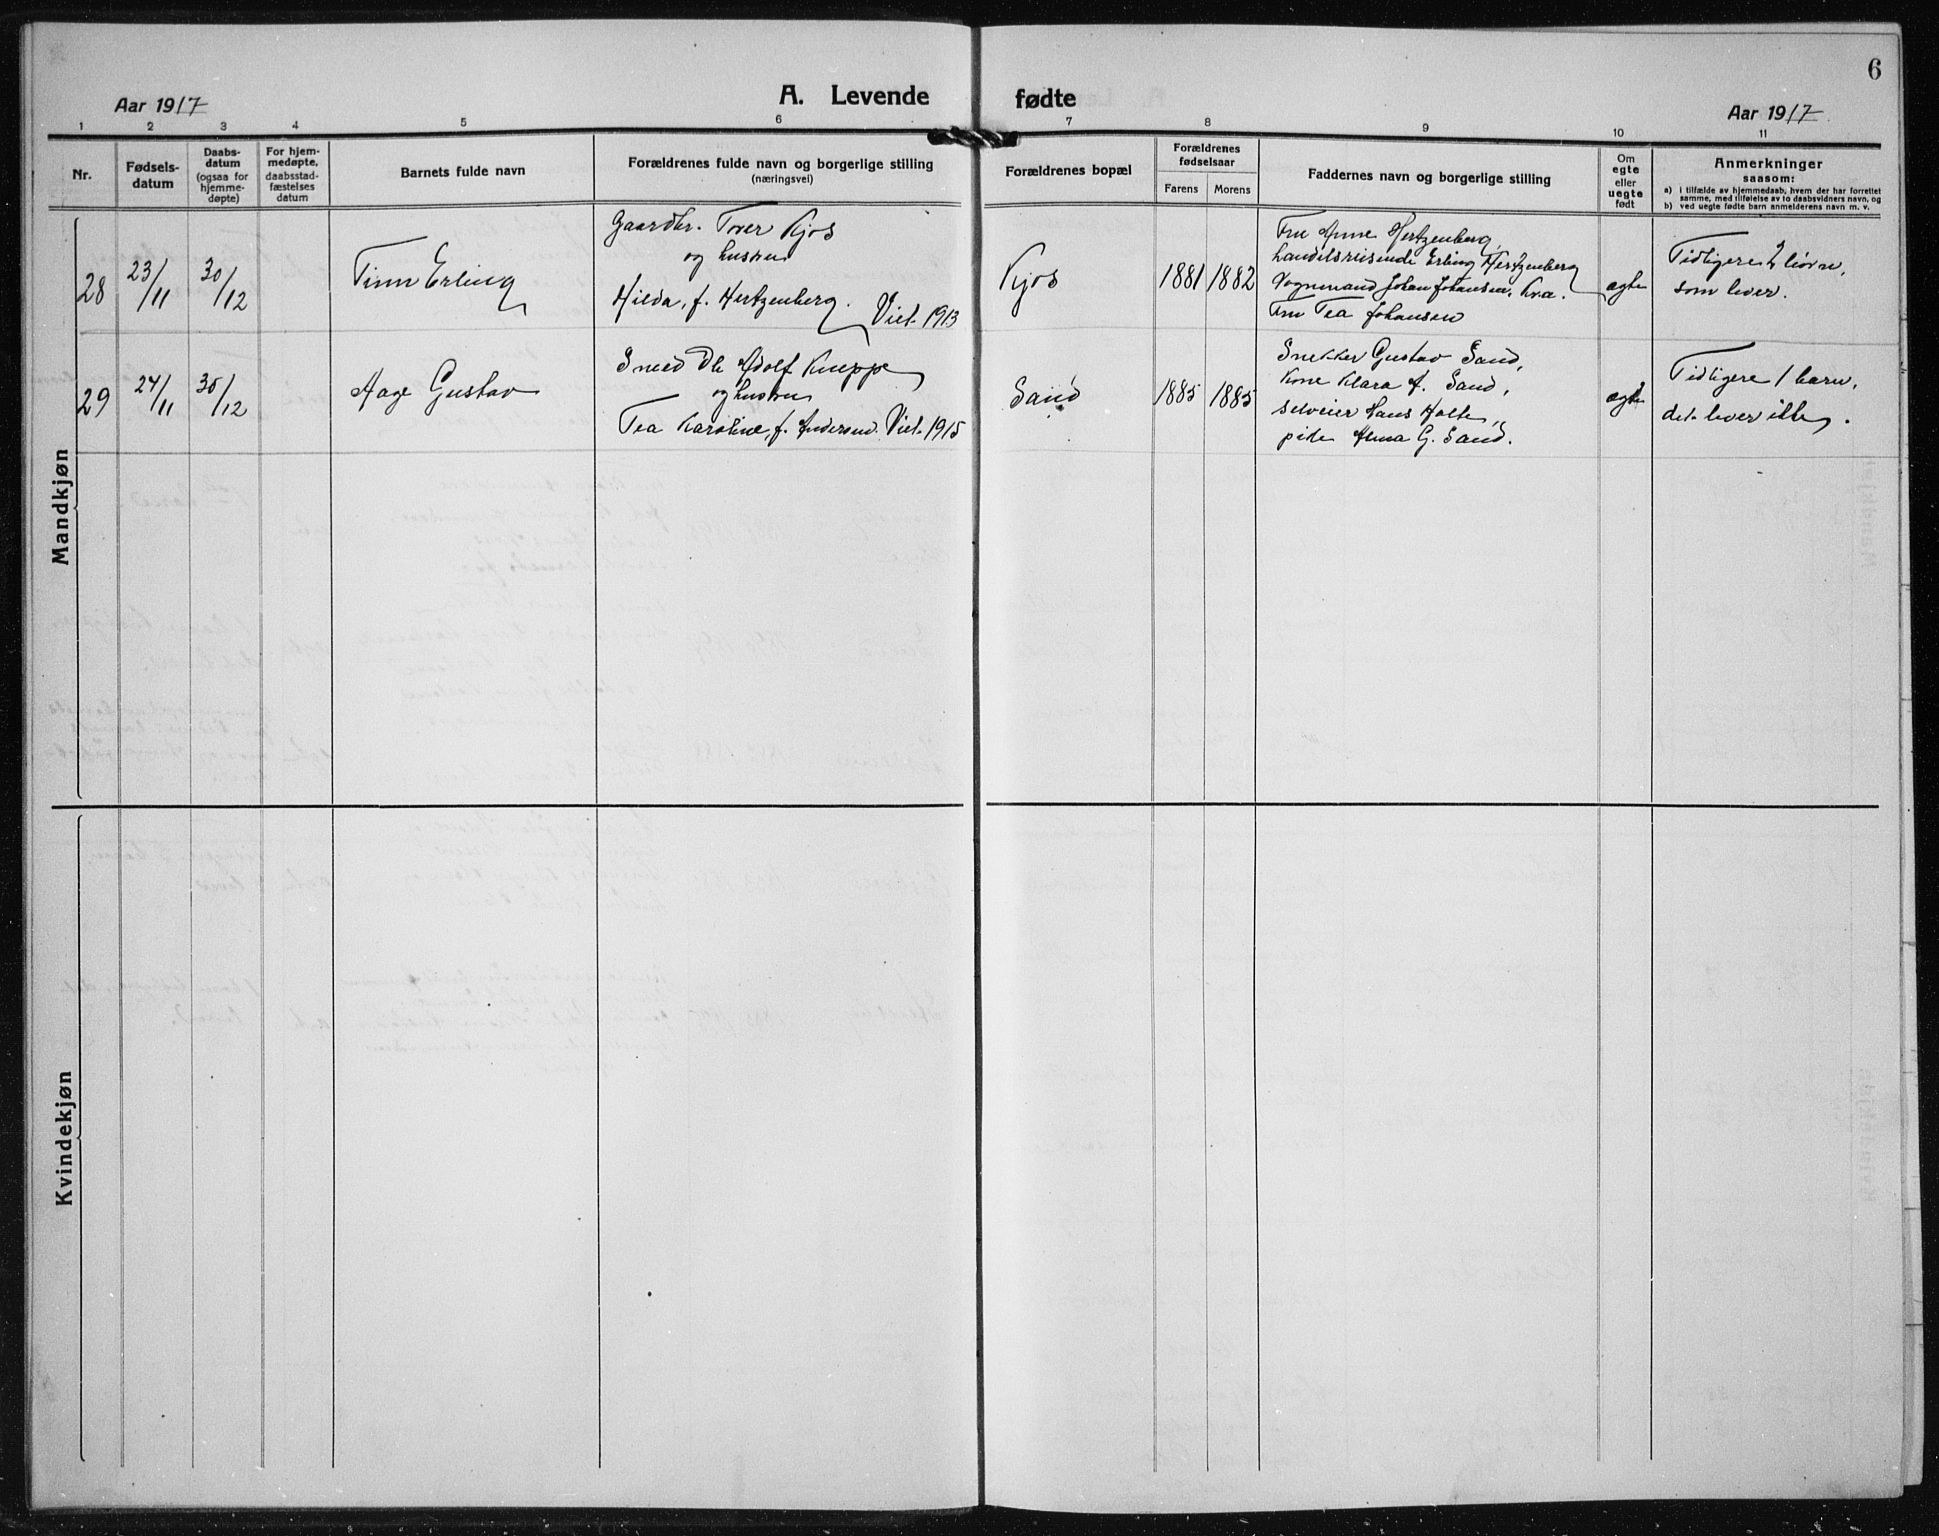 6
Aar 1917
A. Levende
fødte
Aar 1917
1 2 3 4 5 6 7 8 9 10 11
Nr.
Fødsels-
datum
Daabs-
datum
(ogsaa for
hjemme-
døpte)
For hjem-
medøpte,
daabsstad-
fæstelses
datum
Barnets fulde navn
Forældrenes fulde navn og borgerlige stilling
(næringsvei)
Forældrenes bopæl
Forældrenes
fødselsaar
Farens Morens
Faddernes navn og borgerlige stilling
Om
egte
eller
uegte
født
Anmerkninger
saasom:
a) i tilfælde av hjemmedaab, hvem der har forrettet
samme, med tilføielse av to daabsvidners navn, og
b) ved uegte fødte barn anmelderens navn m. v.
Mandkjøn
28
23/11
30/12
Finn Erling
Gaardbr. Tover Kjos
og hustru
Hilda, f. Hertzenberg. Viet 1913
Kjos
1881 1882
Fru Anne Hertzenberg,
handelsreisende Erling Hertzenberg
Vognmand Johan Johansen, Kra.
Fru Tea Johansen
ægte
Tidligere 2 børn,
som lever.
29
24/11
30/12
Aage Gustav
Smed Adolf Kneppe
og hustru
Tea Karoline, f. Andersen. Viet 1915
Sand
1885 1885
Snekker Gustav Sand,
Kone Klara A. Sand,
selveier Hans Holte,
pike Alma G. Sand.
ægte
Tidligere 1 barn,
det lever ikke.
Kvindekjøn